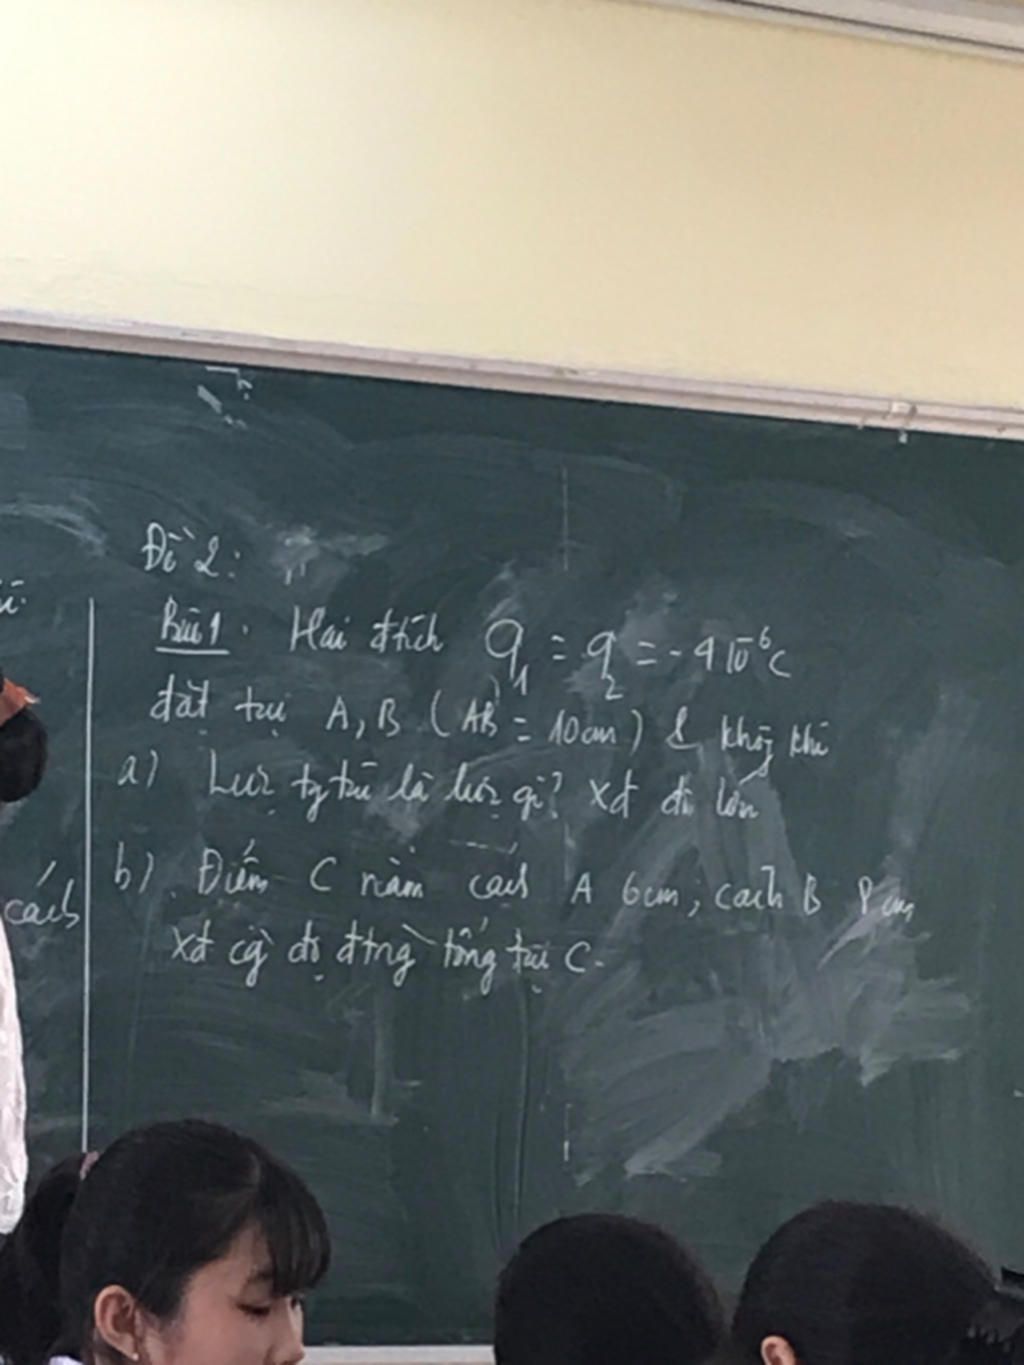 Đề 2:
Bài 1. Hai đtích q1 = q2 = -9 10^-6 C
đặt tại A, B (AB = 10cm) ở không khí
a) Lực tg tác là lực gì? Xđ độ lớn
b) Điểm C nằm cách A 6cm; cách B 8cm
Xđ cg độ đtrg tổng tại C.
cách